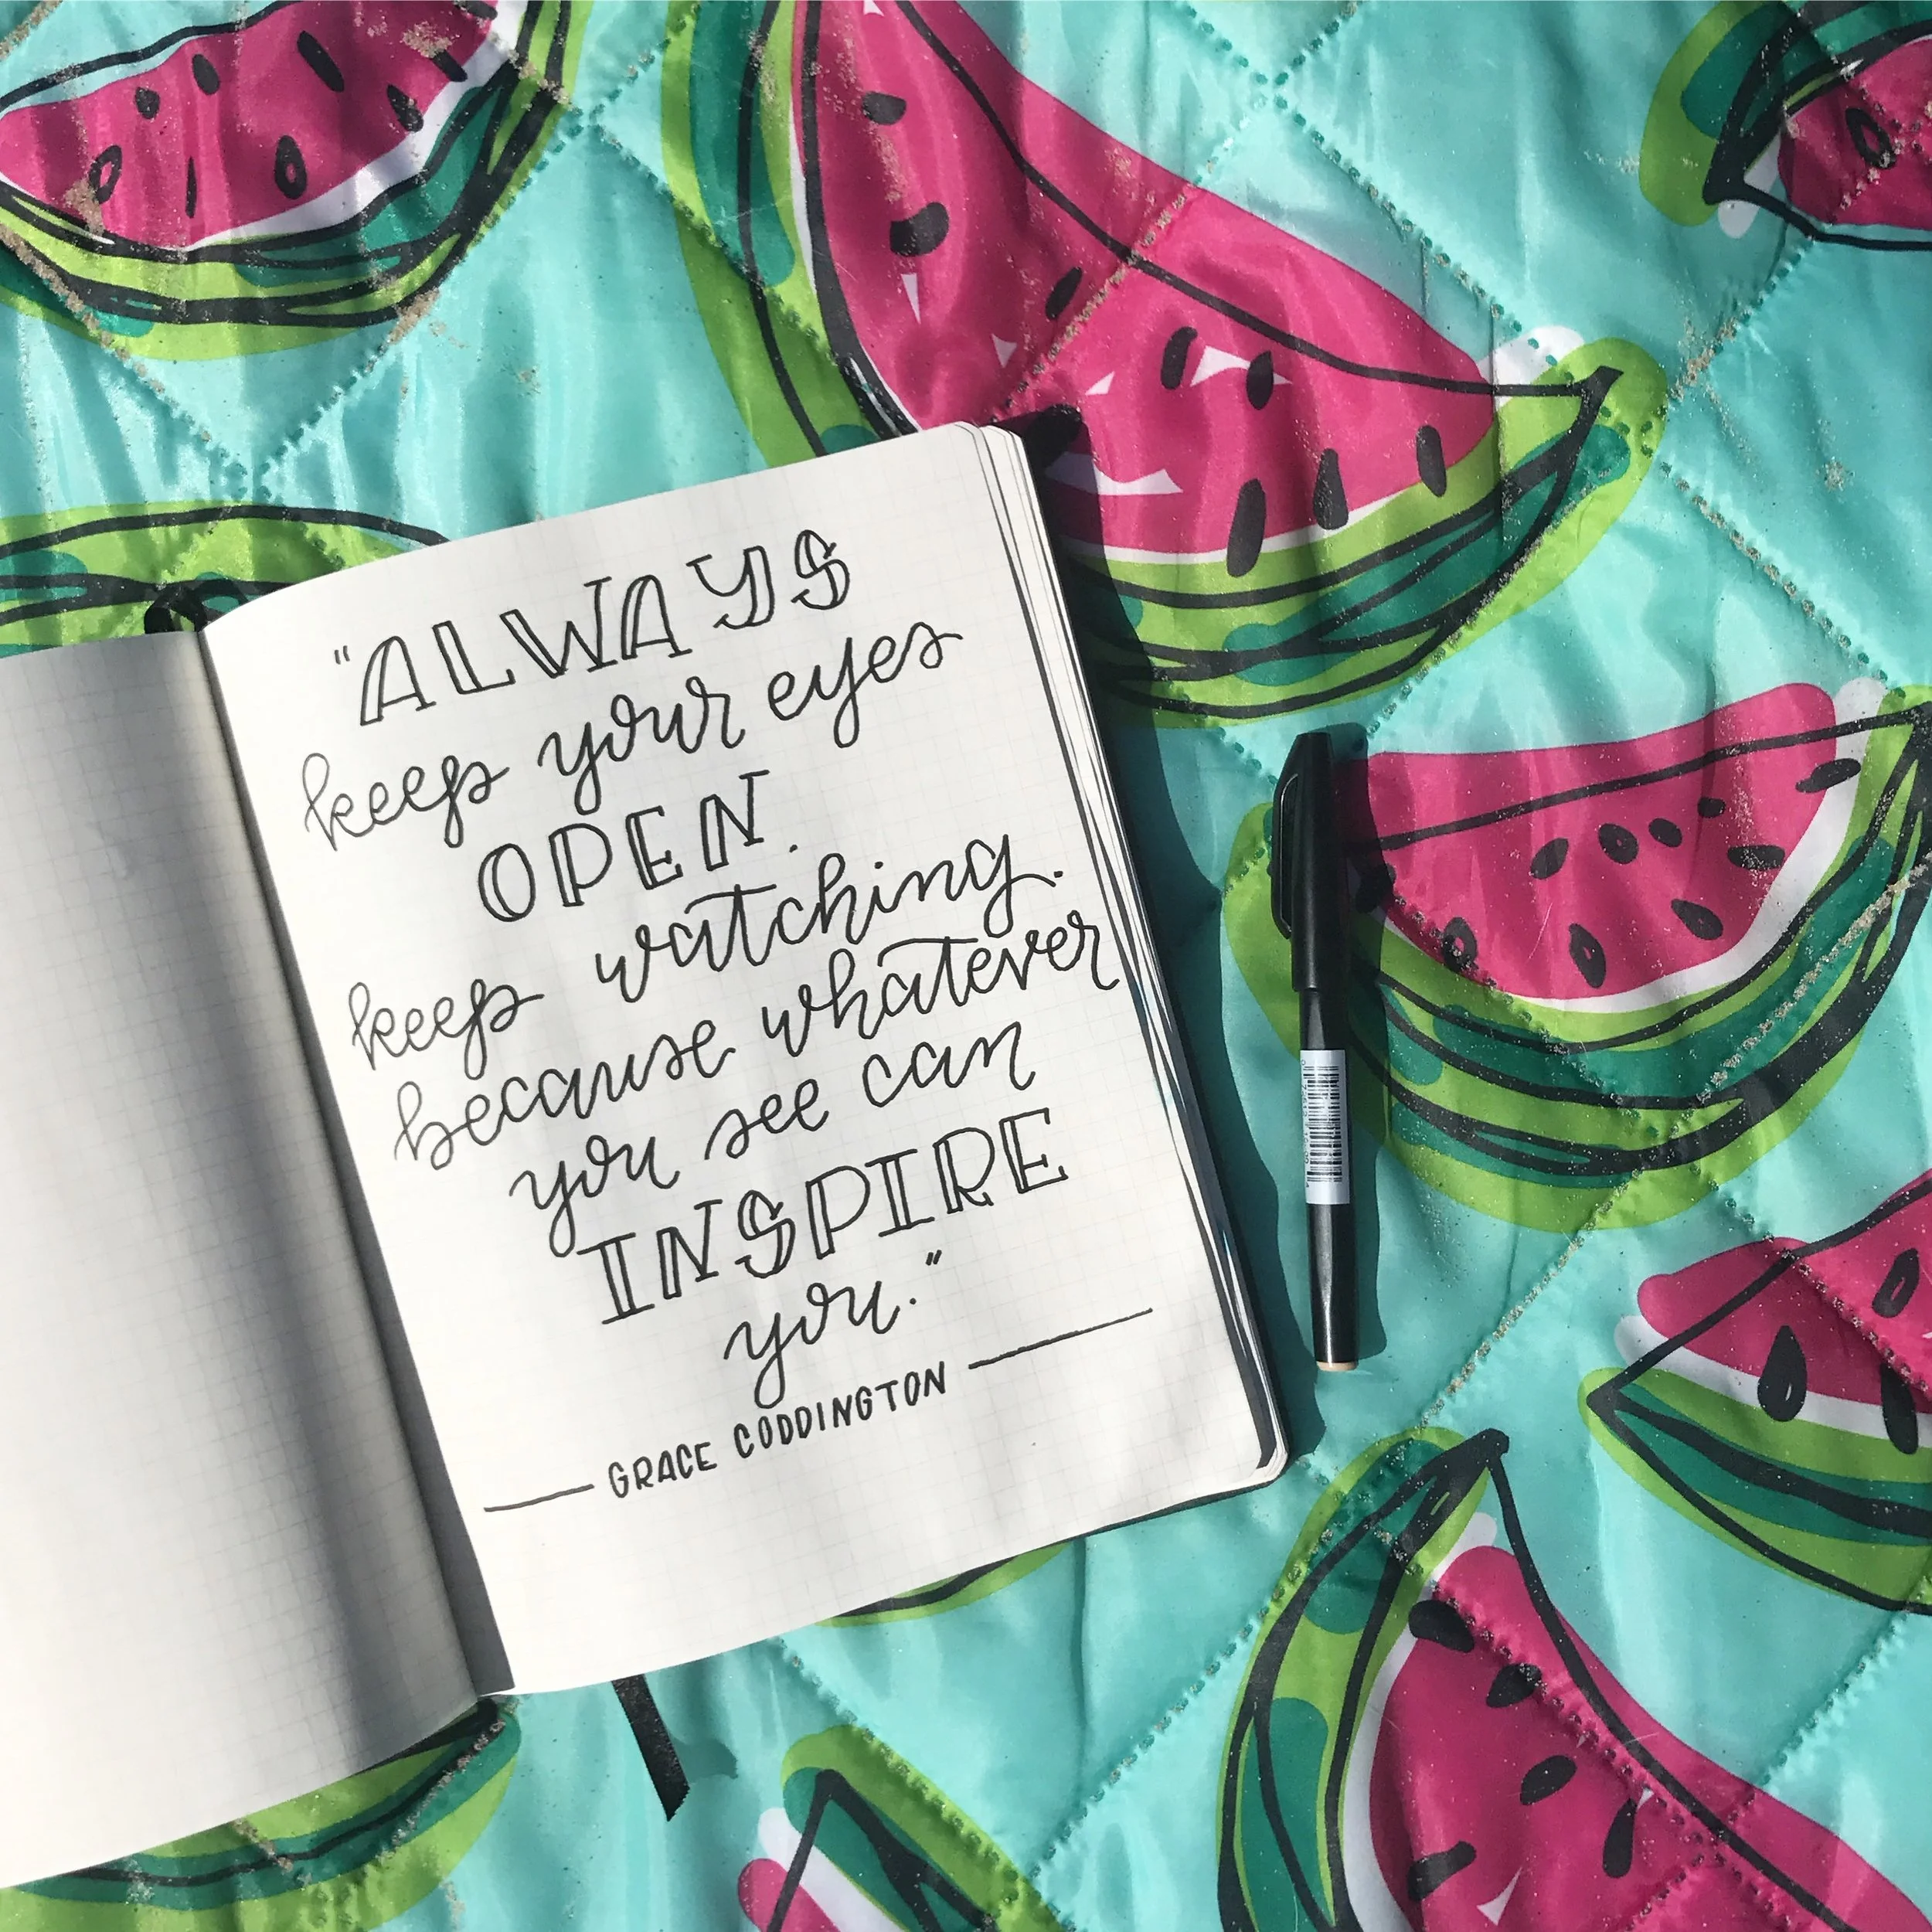 "ALWAYS
keep your eyes
OPEN.
keep watching.
because whatever
you see can
INSPIRE
you."
GRACE CODDINGTON